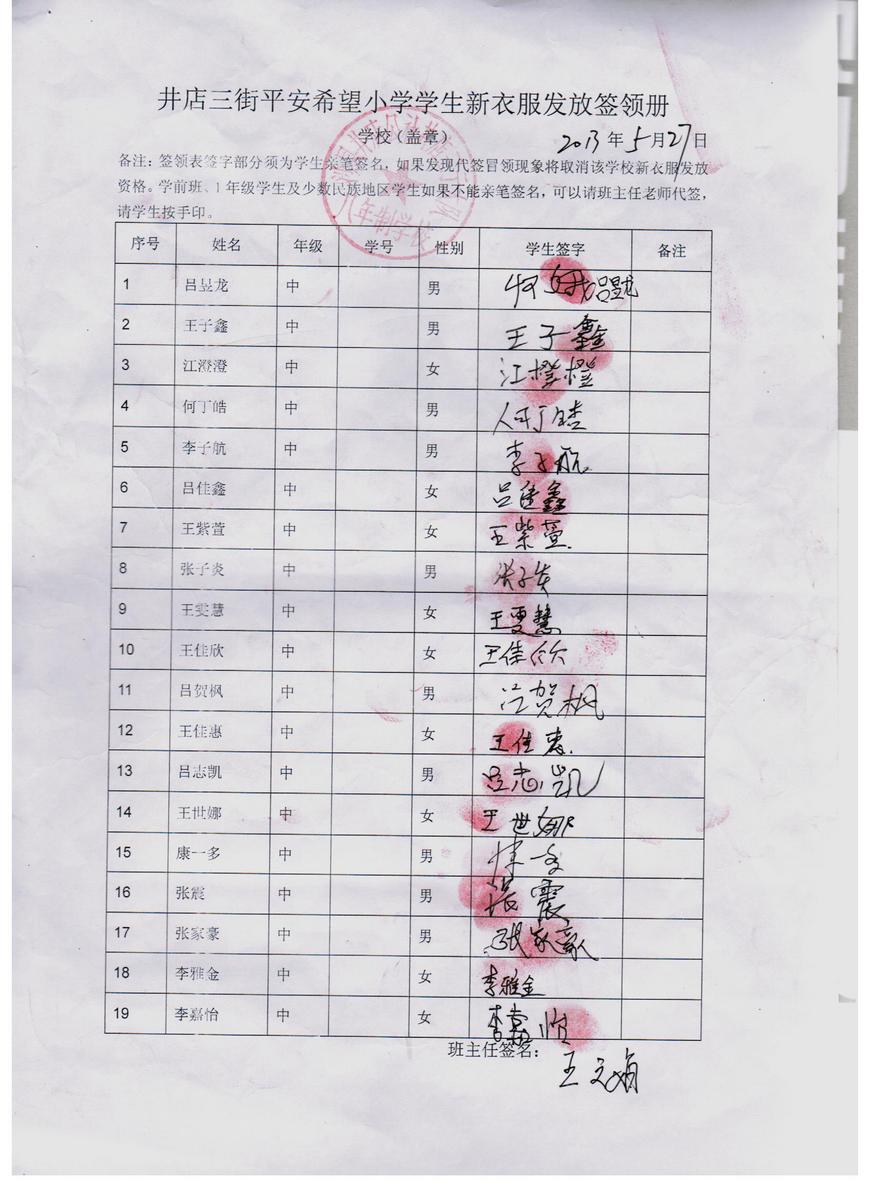 井店三街平安希望小学学生新衣服发放签领册
学校（盖章） 2013 年 5 月 27 日
备注：签领表签字部分须为学生亲笔签名，如果发现代签冒领现象将取消该学校新衣服发放
资格。学前班、1 年级学生及少数民族地区学生如果不能亲笔签名，可以请班主任老师代签，
请学生按手印。
八年制学校
序号 姓名 年级 学号 性别 学生签字 备注
1 吕昱龙 中 男 吕昱龙
2 王子鑫 中 男 王子鑫
3 江澄澄 中 女 江橙橙
4 何丁皓 中 男 何丁皓
5 李子航 中 男 李子航
6 吕佳鑫 中 女 吕佳鑫
7 王紫萱 中 女 王紫萱
8 张子炎 中 男 张子炎
9 王雯慧 中 女 王雯慧
10 王佳欣 中 女 王佳欣
11 吕贺枫 中 男 吕贺枫
12 王佳惠 中 女 王佳惠
13 吕志凯 中 男 吕志凯
14 王世娜 中 女 王世娜
15 康一多 中 男
16 张震 中 男 张震
17 张家豪 中 男 张家豪
18 李雅金 中 女 李雅金
19 李嘉怡 中 女 李嘉怡
班主任签名：
王文娟